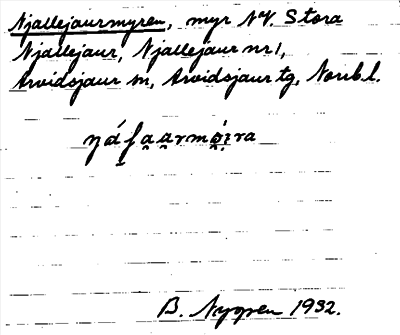 Njallejaurmyren, myr NV. Stora
Njallejaur, Njallejaur nr 1,
Arvidsjaur sn, Arvidsjaur tg, Norrb. l.
B. Nygren 1932.